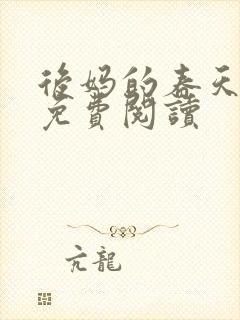 後妈的春天
免費閱讀
亢龍